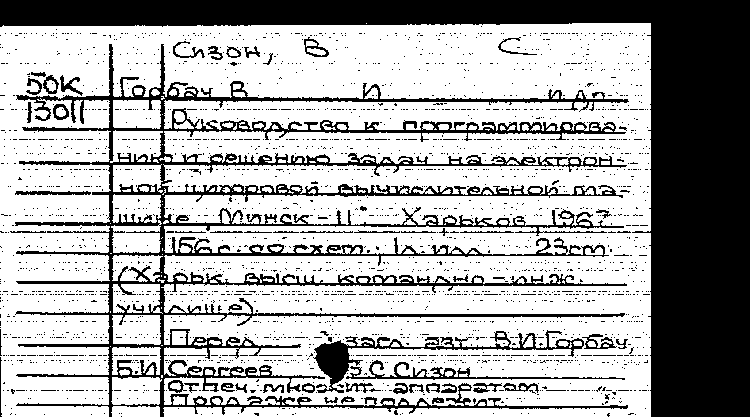 Сизон, В С
50К Горбач, В И. и др.
13011
Руководство к программирова-
нию и решению задач на электрон-
ной цифровой вычислительной ма-
шине „Минск-11". Харьков, 1967
156 с. со схем.; 1 л. илл. 23 см.
(Харьк. высш. командно-инж.
училище).
Перед загл. авт.: В.И. Горбач,
Б.И. Сергеев В.С. Сизон
Отпеч. множит. аппаратом.
Продаже не подлежит.